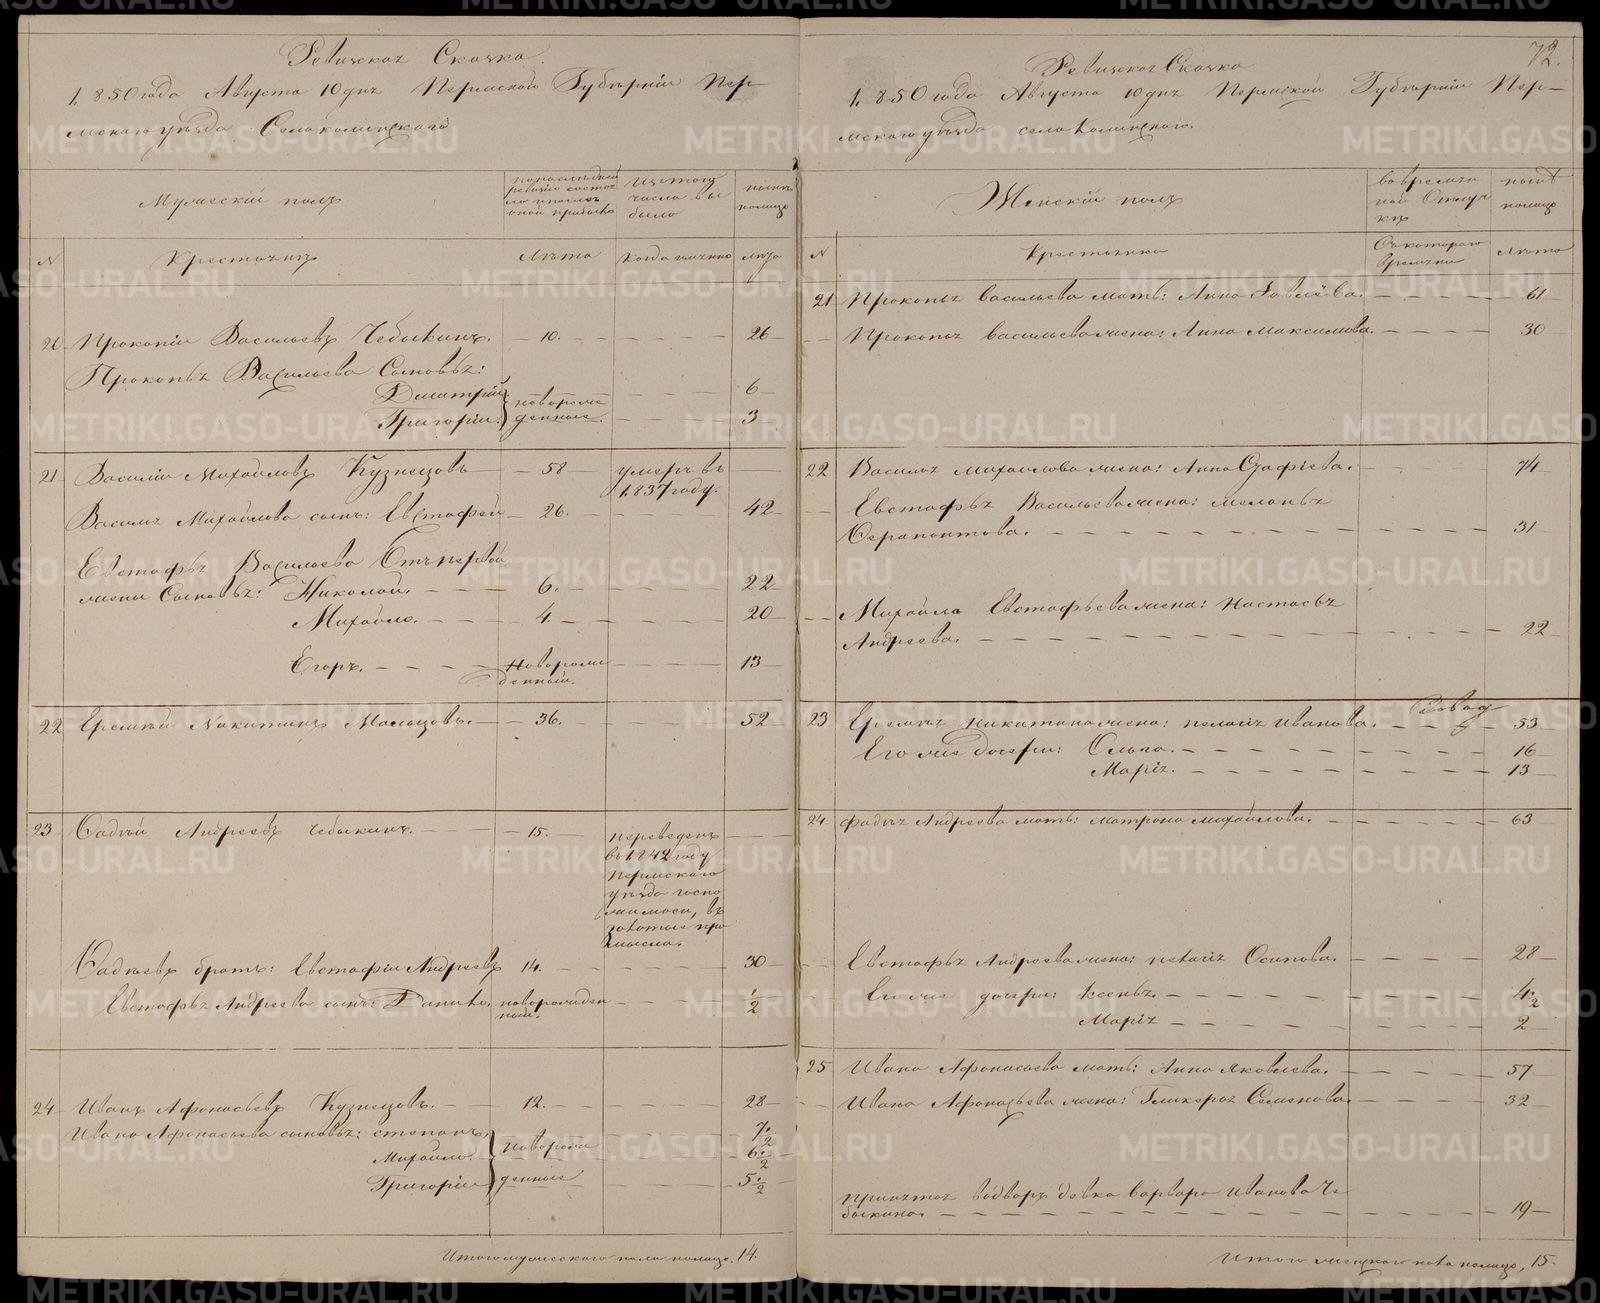 72.
Ревизская Сказка.
1850 года Августа 10 дня Пермской Губернiи Пер-
мскаго уезда Села коминскаго
Мужескiй полъ
по последней ревизiи состояло и после оной прибыло
Изъ того числа выбыло
ныне на лицо
N
Крестьянъ
Лета
Когда именно
лета
20 Прокопiй Васильевъ Чебыкинъ. 10. 26
Прокопья Васильева Сыновья:
Дмитрiй 6
Григорiй. новорожденные. 3
21 Василiй Михайловъ Кузнецовъ 58 умеръ въ
1837 году.
Василья Михайлова сынъ: Евстафей 26. 42
Евстафья Васильева Отъ первой
жены Сыновья: Николай. 6. 22
Михайло. 4. 20
Егоръ. Новорожденный. 13
22 Еремей Никитинъ Мальцовъ. 36. 52
23 Фадей Андреевъ Чебыкинъ. 15. переведенъ
въ 1842 году
Пермскаго
уезда
въ
промысла.
Фадеевъ братъ: Евстафiй Андреевъ 14. 30
Евстафья Андреева сынъ: Данило. новорожденный. 1/2
24 Иванъ Афонасьевъ Кузнецовъ. 12. 28
Ивана Афонасьева сыновья: степанъ, 7 1/2
Михайло. новорож 6 1/2
Григорiй денные 5 1/2
Итого мужескаго пола на лицо 14.
Ревизская Сказка
1850 года Августа 10 дня Пермской Губернiи Пер-
мскаго уезда села Коминскаго.
Женскiй полъ
во временной Отлучке
ныне на лицо
N
Крестьянки
Съ котораго времени
лета
21 Прокопья васильева мать: Анна Павлова. 61
Прокопья васильева жена: Анна Максимова. 30
22 Василья михайлова жена: Анна 74
Евстафья Васильева жена: меланья
Серапонтова. 31
Михайла Евстафьева жена: Настасья
Андреева. 22
23 Еремея никитина жена: пелагiя иванова. 53
Его же дочери: Ольга. 16
Марiя. 13
24 Фадея Андреева мать: матрона михайлова. 63
Евстафья Андреева жена: пелагiя Осипова. 28
Его же дочери: ксенья. 4 1/2
Марiя 2
25 Ивана Афонасьева мать: Анна яковлева. 57
Ивана Афонасьева жена: Гликерья Семенова. 32
принятая водворъ девка варвара иванова Че-
быкина. 19
Итого женскаго пола на лицо, 15.
METRIKI.GASO-URAL.RU